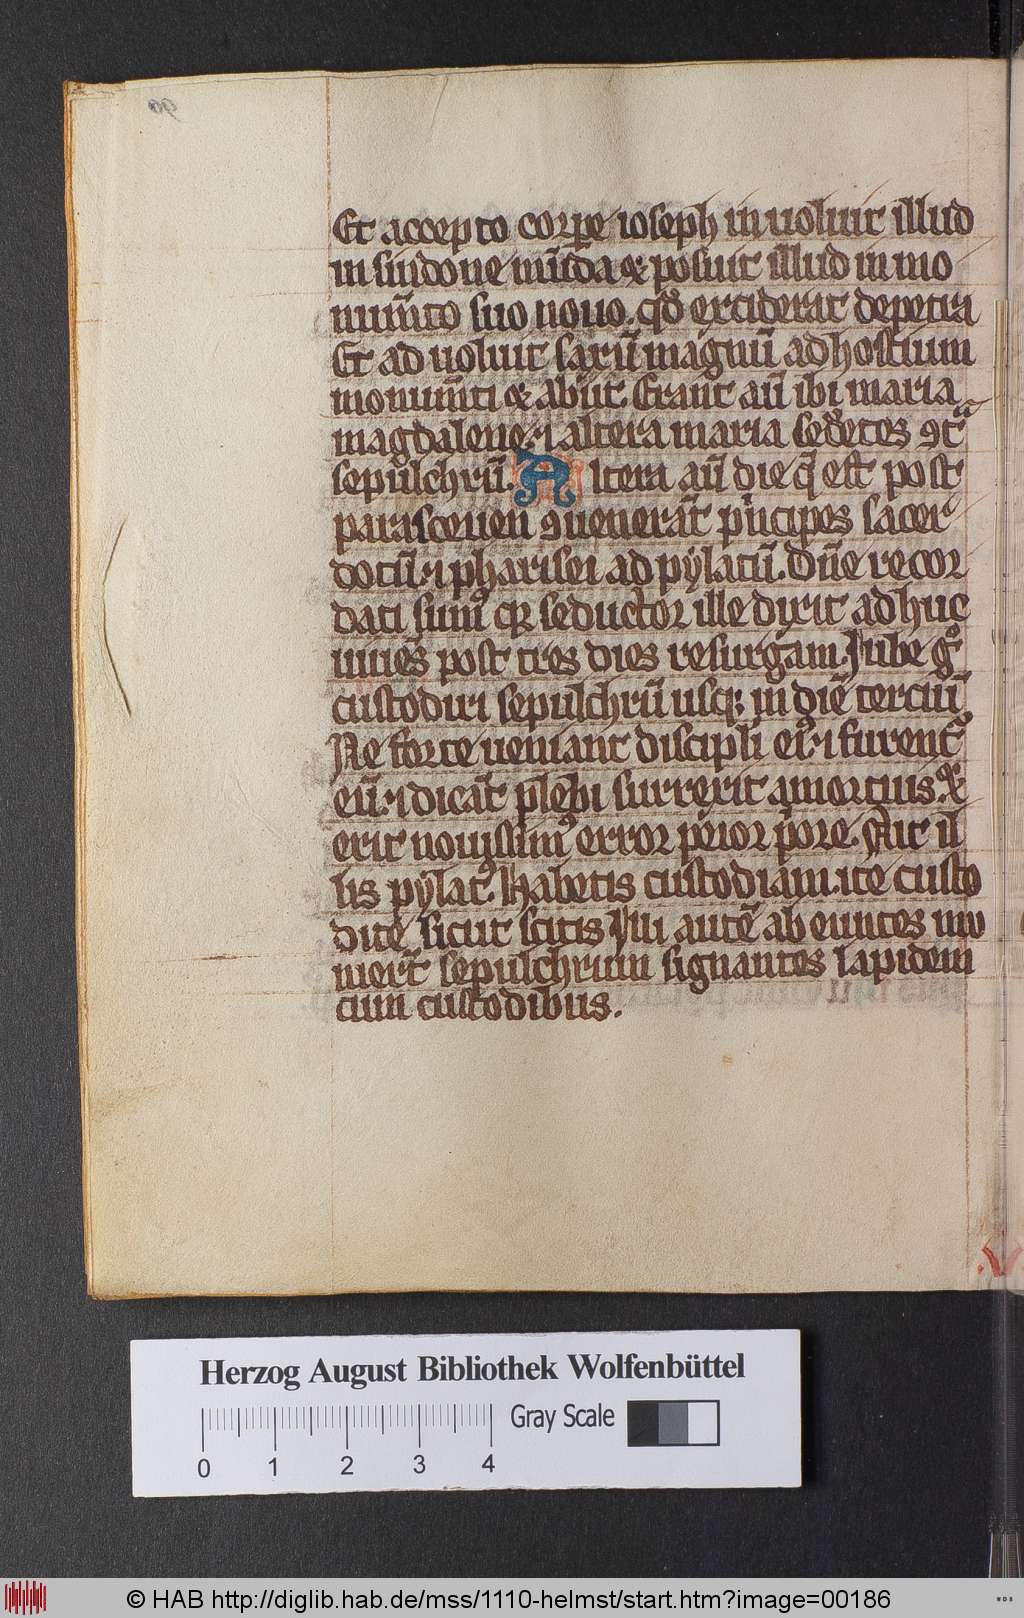 Et accepto corꝑe ioseph inuoluit illud
in sindone mūda & posuit illud in mo
num̄to suo nouo. qd̄ exciderat de petra
Et aduoluit saxū magnū ad hostium
monum̄ti & abiit. Erant aū ibi maria
magdalene. ⁊ altera maria sedētes ꝯt̄ᵃ
sepulchrū. Altera aū die q̄ est post
parasceuen ꝯuenerāt pͥncipes sacer
dotū. ⁊ pharisei ad pylatū. Dn̄e recor
dati sumꝰ qꝛ seductor ille dixit adhuc
uiuēs post tres dies resurgam. Jube gͦ
custodiri sepulchrū usqꝫ in diē terciū
Ne forte ueniant discipli eiꝰ. ⁊ furentᵉ
eū. ⁊ dicāt plebi surrexit a mortuis. &
erit nouissimꝰ error peior pͥore. Ait il
lis pylatꝰ. Habetis custodiam. ite custo
dite sicut scitis Illi autē abeuntes mu
niert̄ sepulchrum signantes lapidem
cum custodibus.
Herzog August Bibliothek Wolfenbüttel
Gray Scale
0 1 2 3 4
© HAB http://diglib.hab.de/mss/1110-helmst/start.htm?image=00186